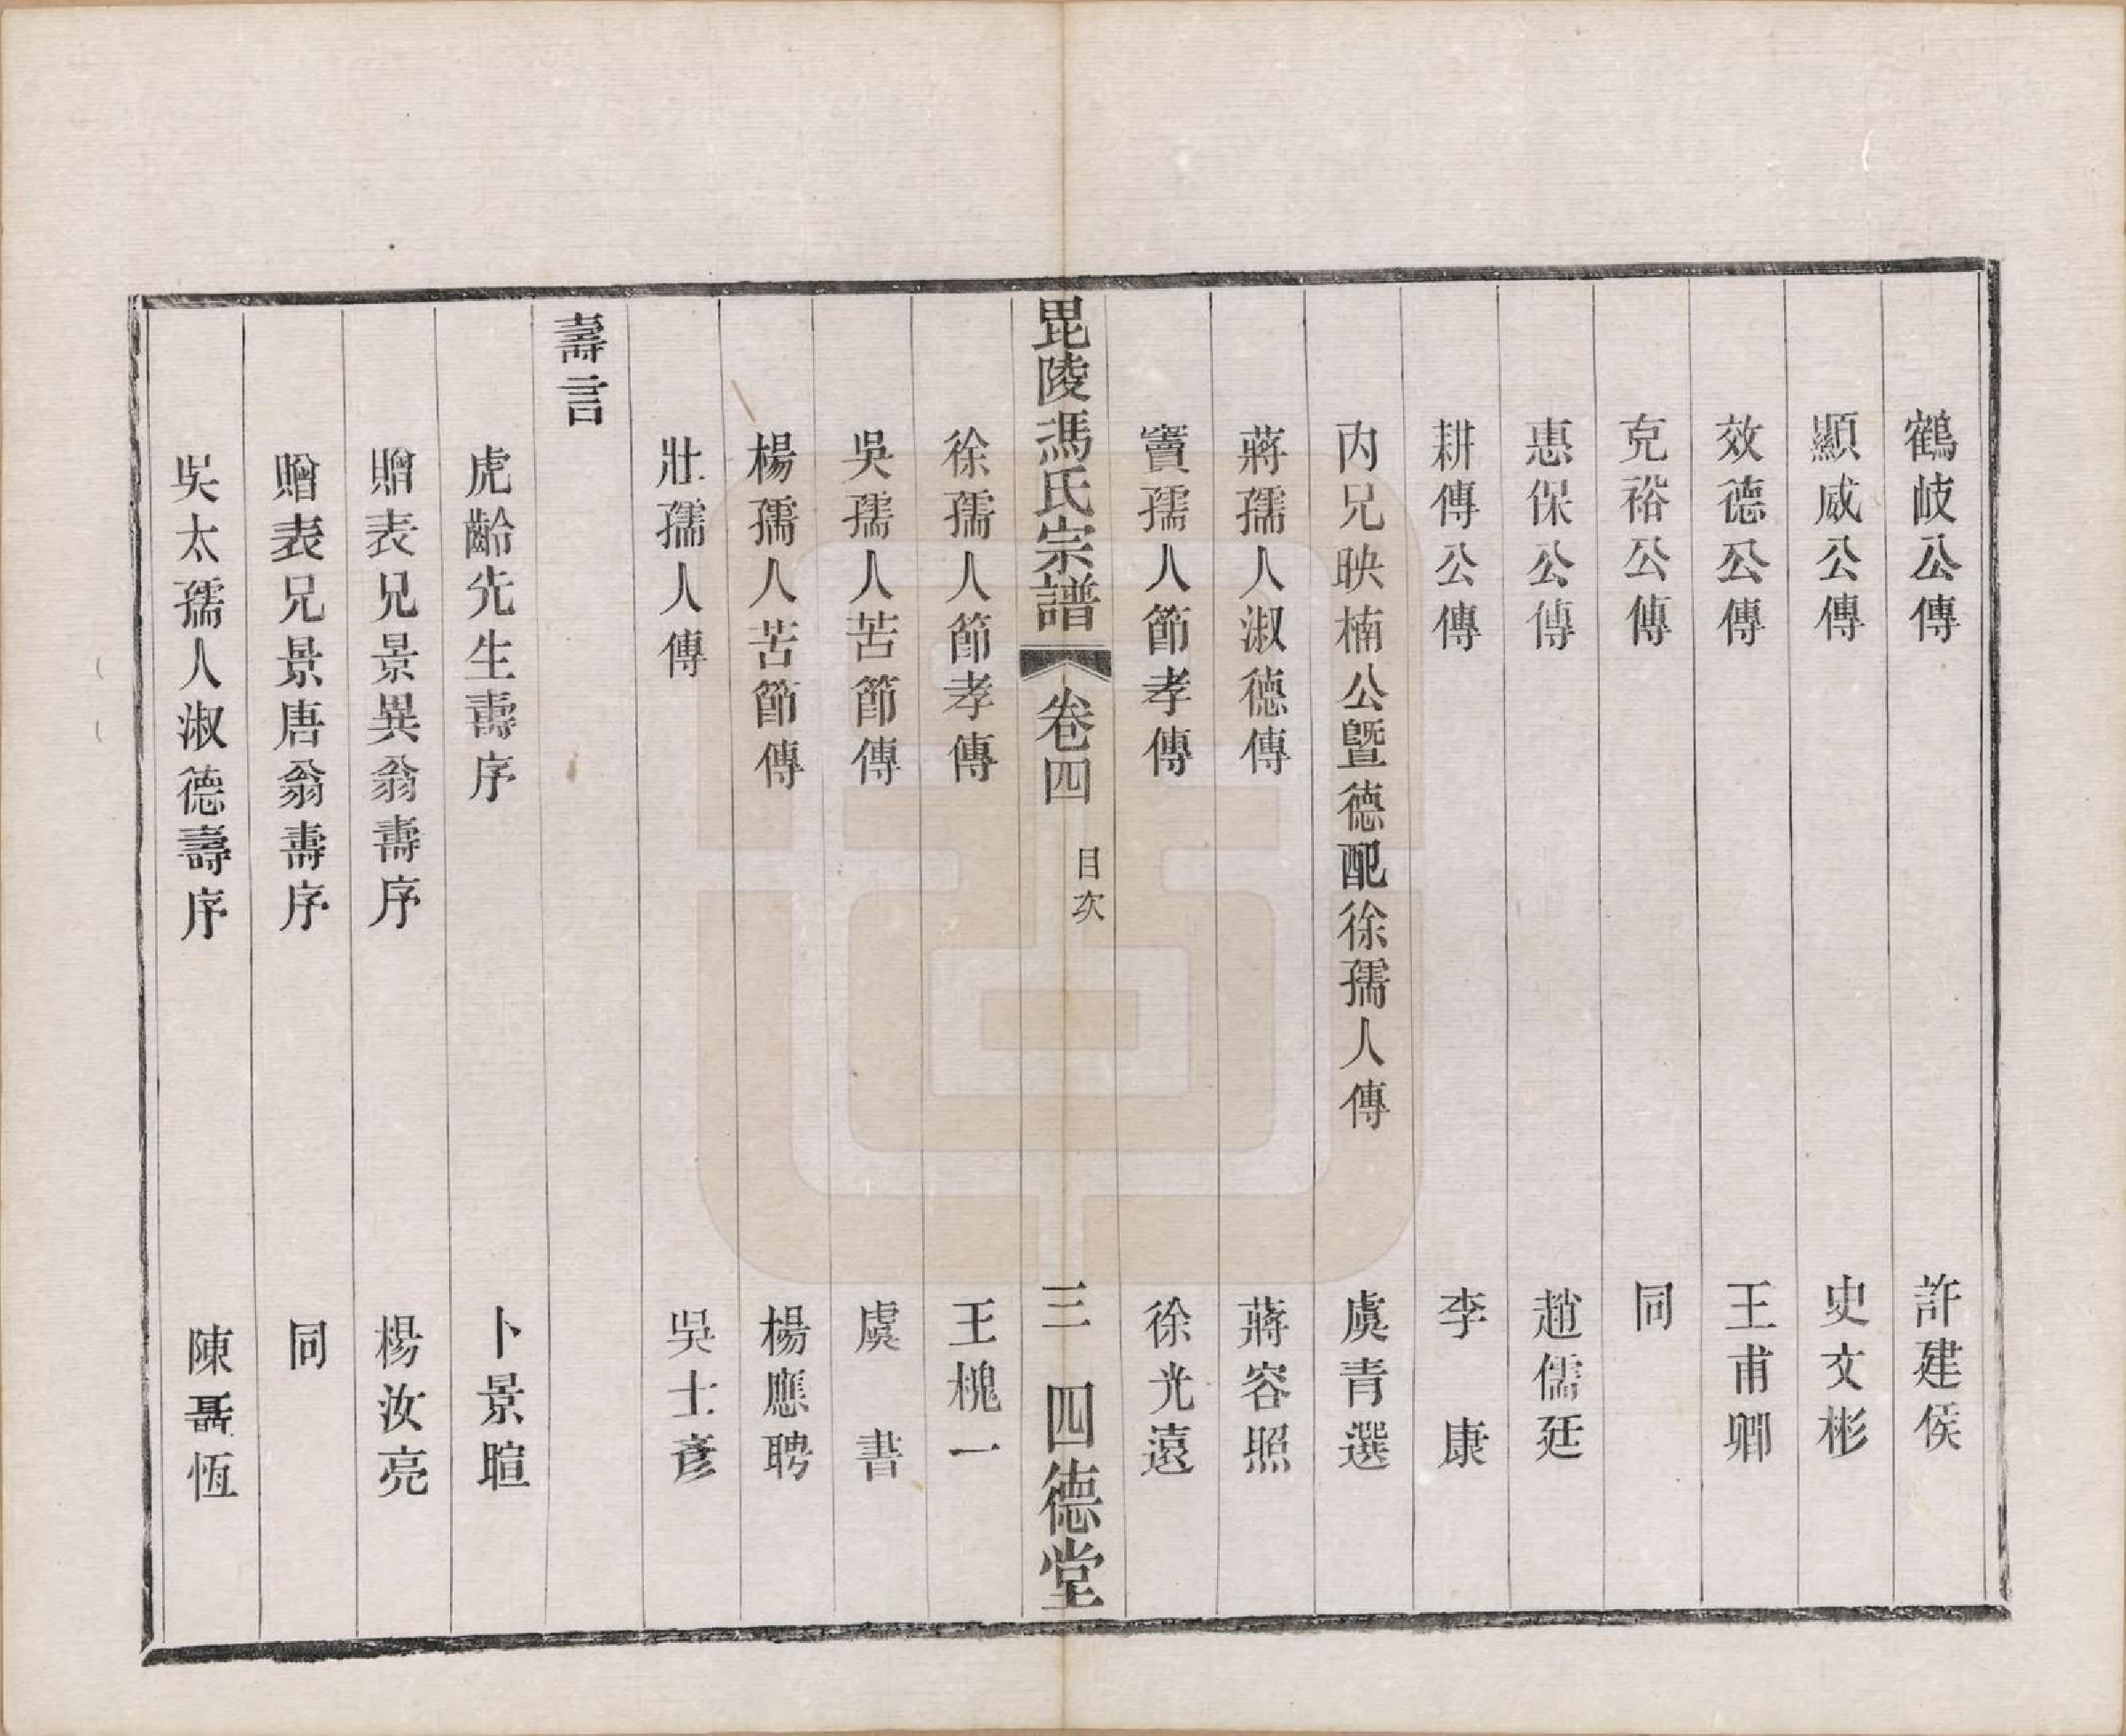 鶴岐公傳　許建侯
顯威公傳　史文彬
效德公傳　王甫卿
克裕公傳　同
惠保公傳　趙儒廷
耕傳公傳　李康
内兄映楠公暨德配徐孺人傳　虞青選
蔣孺人淑德傳　蔣容照
竇孺人節孝傳　徐光遠
毘陵馮氏宗譜　卷四　目次　三　四德堂
徐孺人節孝傳　王槐一
吳孺人苦節傳　虞書
楊孺人苦節傳　楊應聘
壯孺人傳　吳士彥
壽言
虎齡先生壽序　卜景暄
贈表兄景異翁壽序　楊汝亮
贈表兄景唐翁壽序　同
吳太孺人淑德壽序　陳聶恆